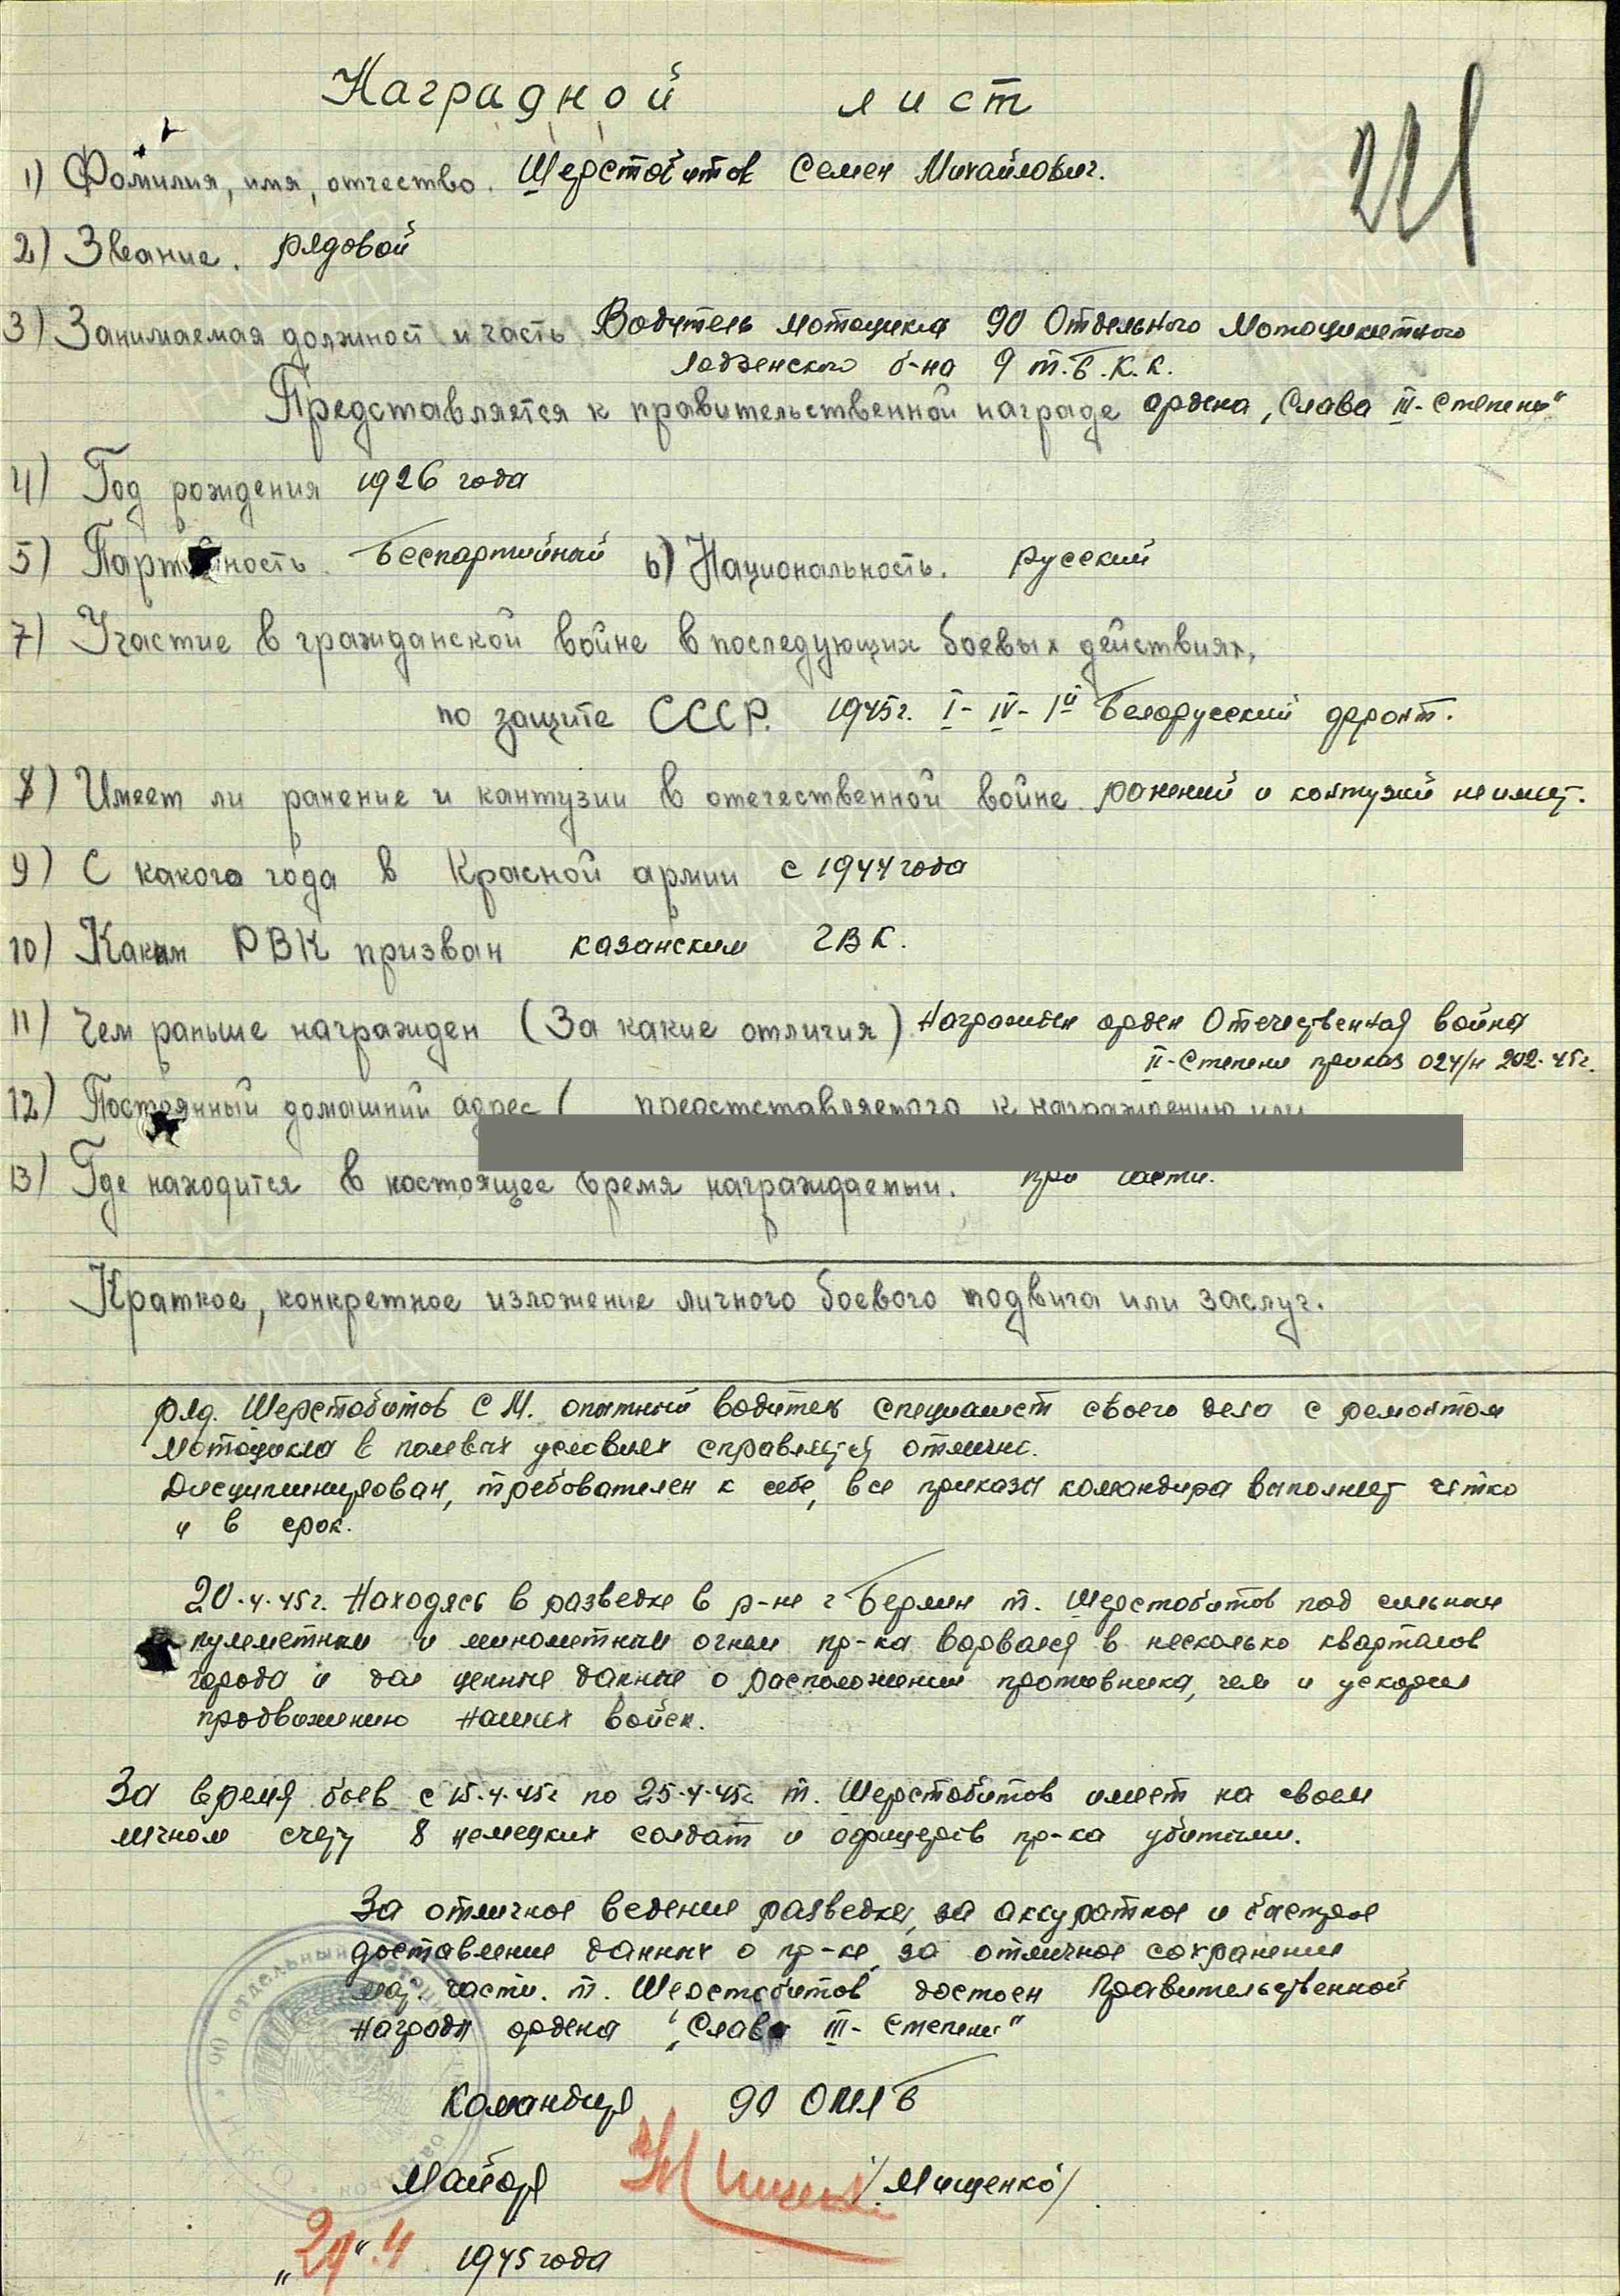 Наградной лист
221
1) Фамилия, имя, отчество. Шерстобитов Семен Михайлович.
2) Звание. рядовой
3) Занимаемая должност и часть Водитель мотоцикла 90 Отдельного Мотоциклетного
Лодзенского б-на 9 т.Б.К.К.
Представляется к правительственной награде ордена „Слава III-степени"
4) Год рождения 1926 года
5) Парт ность. Беспартийный 6) Национальность. русский
7) Участие в гражданской войне в последующих боевых действиях,
по защите СССР. 1945г. I- IV- 1й Белорусский фронт.
8) Имеет ли ранение и кантузии в отечественной войне. ранений и контузий не имеет.
9) С какого года в Красной армии с 1944 года
10) Каким РВК призван казанским ГВК.
11) Чем раньше награжден (За какие отличия) Награжден орден Отечественная война
II-Степени приказ 024/н 45г.
12) Постоянный домашний адрес ( предстставляемого к награждению или
13) Где находится в настоящее время награждаемый. при части.
Краткое, конкретное изложение личного боевого подвига или заслуг.
ряд. Шерстобитов С М. опытный водитель специалист своего дела с ремонтом
мотоцикла в полевых условиях справляется отлично.
Дисциплинирован, требователен к себе, все приказы командира выполняет четко
и в срок.
20.4.45г. Находясь в разведке в р-не г Берлин т. Шерстобитов под сильным
пулеметным и минометным огнем пр-ка ворвался в несколько кварталов
города и дал ценные данные о расположении противника, чем и ускорил
продвижению наших войск.
За время боев с 15.4.45г по 25.4.45г. т. Шерстобитов имеет на своем
личном счету 8 немецких солдат и офицеров пр-ка убитыми.
За отличное ведение разведки, за аккуратное и быстрое
доставление данных о пр-ке, за отличное сохранение
мат. части. т. Шерстобитов достоен Правительственной
награды ордена „Слава III- Степени"
Командир 90 ОМЦБ
Майор /Мищенко/
„29".4 1945 года
90 ОТДЕЛЬНЫЙ
Н К О